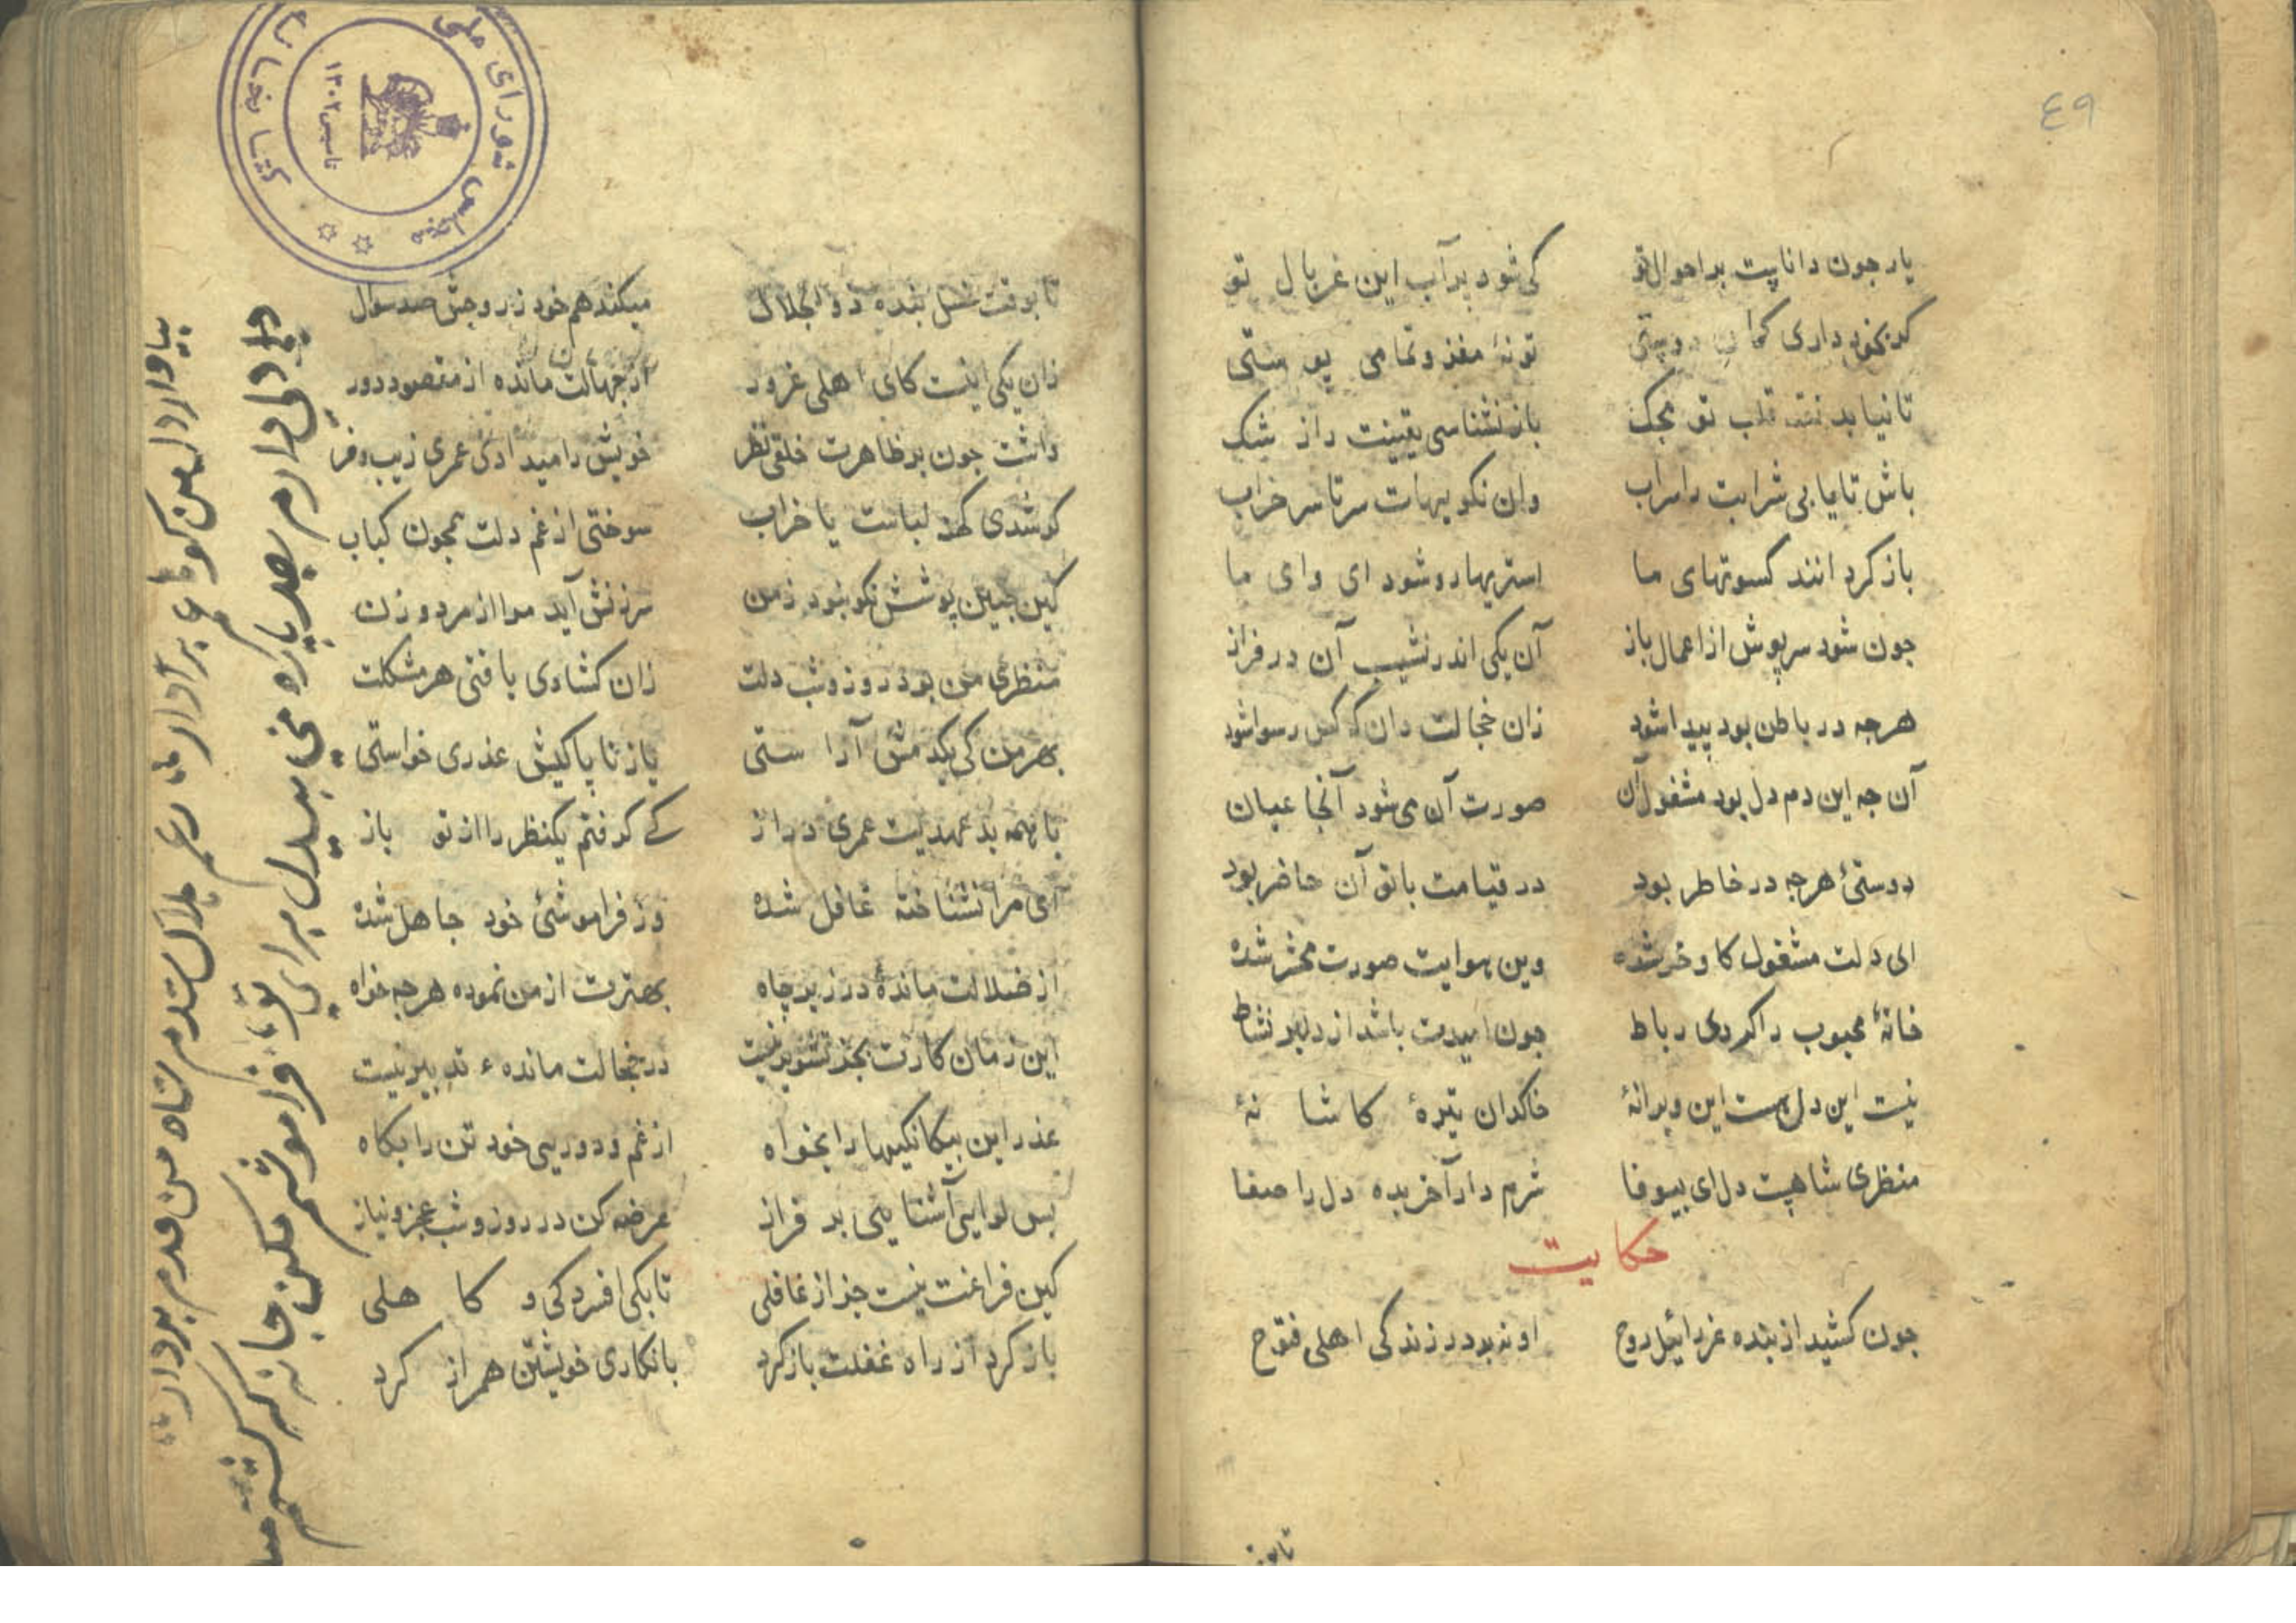 ٤٩
یار جون داناپت بر احوال تو کی شود بر آب این غربال تو
کر بخود داری کمان دوپتی تو نۀ مغز و تمامی پوستی
تا نیابد نقد قلب تو محک باز نشناسی یقینت را ز شک
باش تا یابی شرابت را سراب وان نکویهات سر تا سر خراب
باز کردانند کسوتهای ما استریها رو شود ای وای ما
جون شود سرپوش از اعمال باز آن یکی اندر نشیب آن در فراز
هرجه در باطن بود پیدا شود زان خجالت دان که کس رسوا شود
آن جه این دم دل بود مشغول آن صورت آن می شود آنجا عیان
دوستئ هرجه در خاطر بود در قیامت با تو آن حاضر بود
ای دلت مشغول کاو و خر شده وین هوایت صورت محشر شده
خانۀ محبوب را کردی رباط جون امیدت باشد از دلبر نشاط
نیت این دل هست این ویرانۀ خاکدان تیرۀ کاشانۀ
منظری شاهپت دل ای بیوفا شرم دار آخر بده دل را صفا
حکایت
جون کشید از بنده عزرائیل روح او نه بد در زندکی اهلی فتوح
تا بوقت
تا بوقت غسل بنده ذوالجلال میکند هم خود ز روحش صد سوال
زان یکی اینت کای اهلی غرور از جهالت مانده از مقصود دور
داشت جون بر ظاهرت خلقی نظر خویش را میدادی عمری زیب و فر
کو شدی کهنه لباست یا خراب سوختی از غم دلت همجون کباب
کین جنین پوشش نکو نبود ز من سرزنش آید مرا از مرد و زن
منظری من بود روز و شب دلت زان کشادی یافتی هر مشکلت
بهر من کی یکدمش آراستی یا ز ناپاکیش عذری خواستی
با همه بد عهدیت عمری دراز کے کرفتم یکنظر را از تو باز
ای مرا نشناخته غافل شده وز فراموشئ خود جاهل شده
از ضلالت ماندۀ در زیر چاه بهترت از من نموده هرجه خواه
این زمان کارت بجز تشویر نیت در خجالت ماندهء تدبیر نیت
عذر این بیکانکیها را بخواه از غم و دوریی خود تن را بکاه
بس لوایی آشنایی بر فراز عرضه کن در روز و شب عجز و نیاز
کین فراغت نیت جز از غافلی تا بکی افسردکی و کاهلی
باز کرد از راه غفلت باز کرد با نکاری خویشتن همراز کرد
دلی دارم بصد پاره من بیدل برای تو فراموشم مکن جانه که کشتم
بیا وار دل من کوه غم بردار هلاک شدم شاه من قدم بردار
مجلس شورای ملی
کتابخانه
تاسیس ١٣٠٢